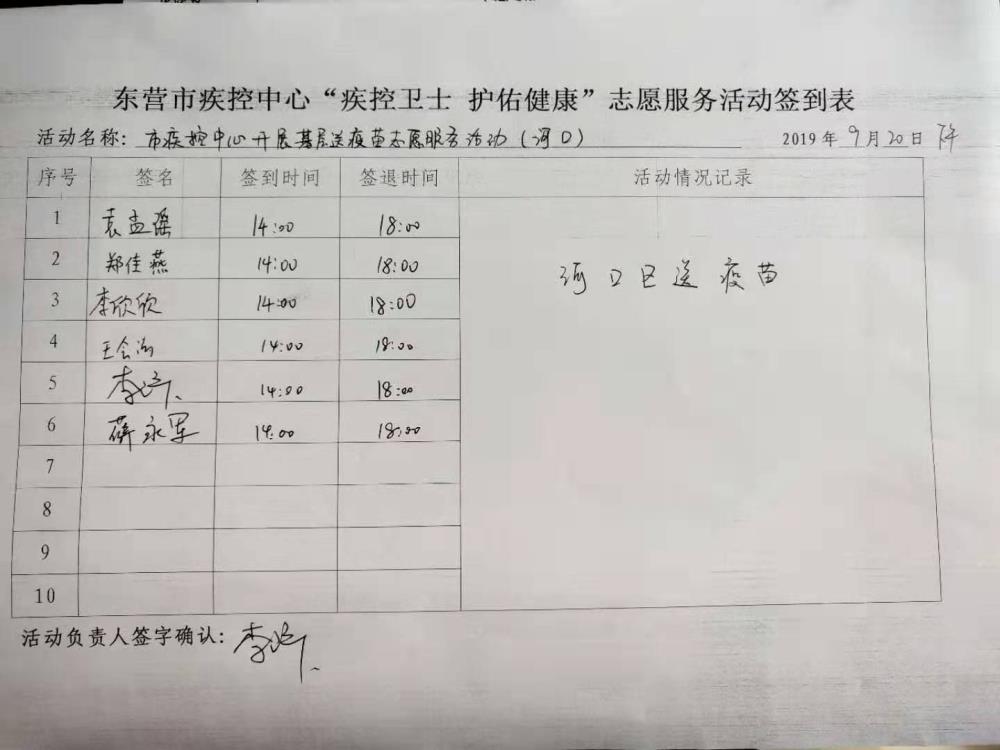 东营市疾控中心“疾控卫士 护佑健康”志愿服务活动签到表
活动名称：市疾控中心开展基层送疫苗志愿服务活动（河口） 2019年9月20日
序号 签名 签到时间 签退时间 活动情况记录
1 袁孟瑶 14:00 18:00
2 郑佳燕 14:00 18:00
河口区送疫苗
3 李欣欣 14:00 18:00
4 14:00 18:00
5 14:00 18:00
6 薛永军 14:00 18:00
7
8
9
10
活动负责人签字确认：